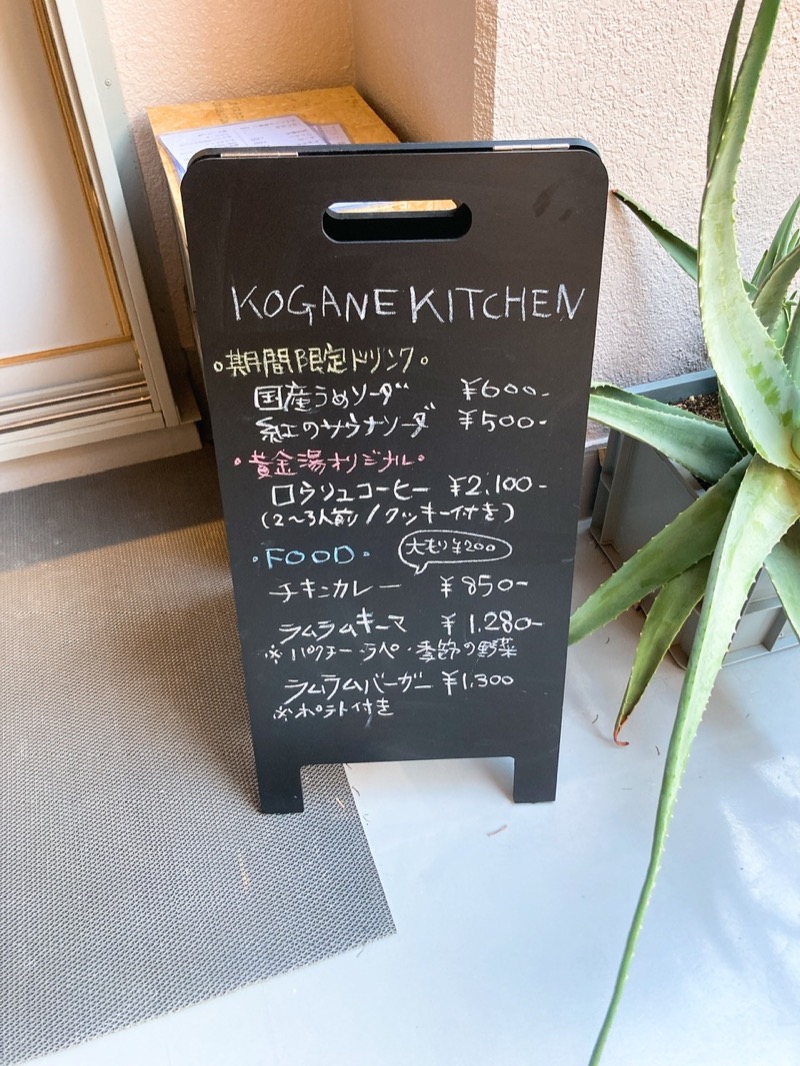 KOGANE KITCHEN
・期間限定ドリンク・
国産うめソーダ ¥600-
紅のサウナソーダ ¥500-
・黄金湯オリジナル・
ロウリュコーヒー ¥2,100-
(2〜3人前/クッキー付き)
・FOOD・ 大もり¥200
チキンカレー ¥850-
ラムラムキーマ ¥1,280-
※パクチー・ラペ・季節の野菜
ラムラムバーガー ¥1,300
※ポテト付き